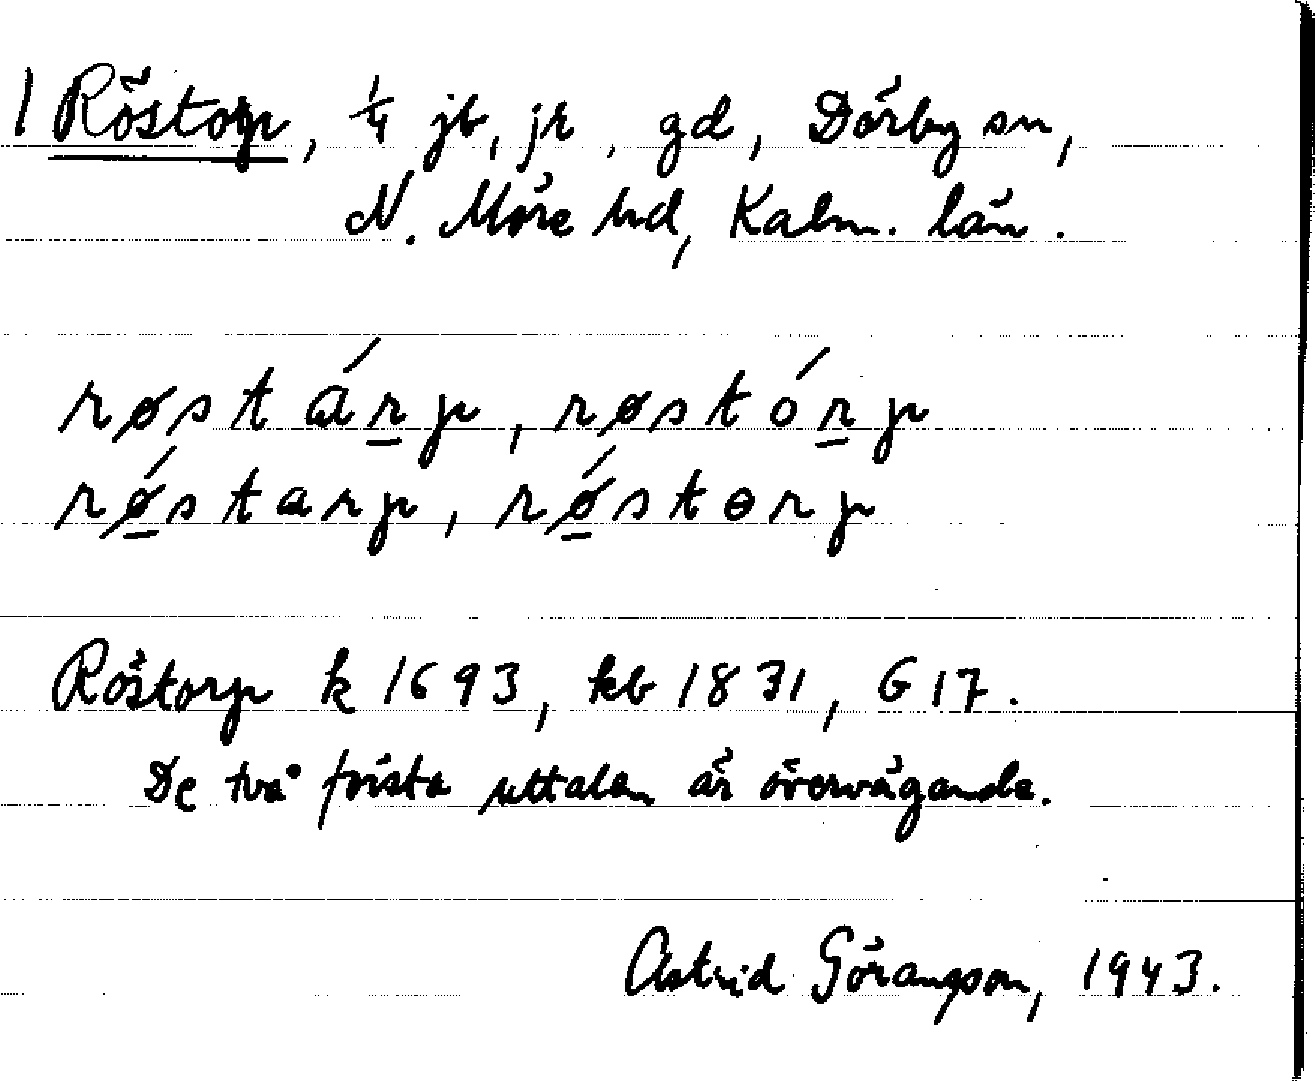 1 Röstorp, 1/4 jb, jr, gd, Dörby sn,
N. Möre hd, Kalm. län.
røstá̱rp, røstó̱rp
rǿ̱starp, rǿ̱stɵrp
Röstorp k 1693, kb 1831, G 17.
De två första uttalen är övervägande.
Astrid Göranson, 1943.